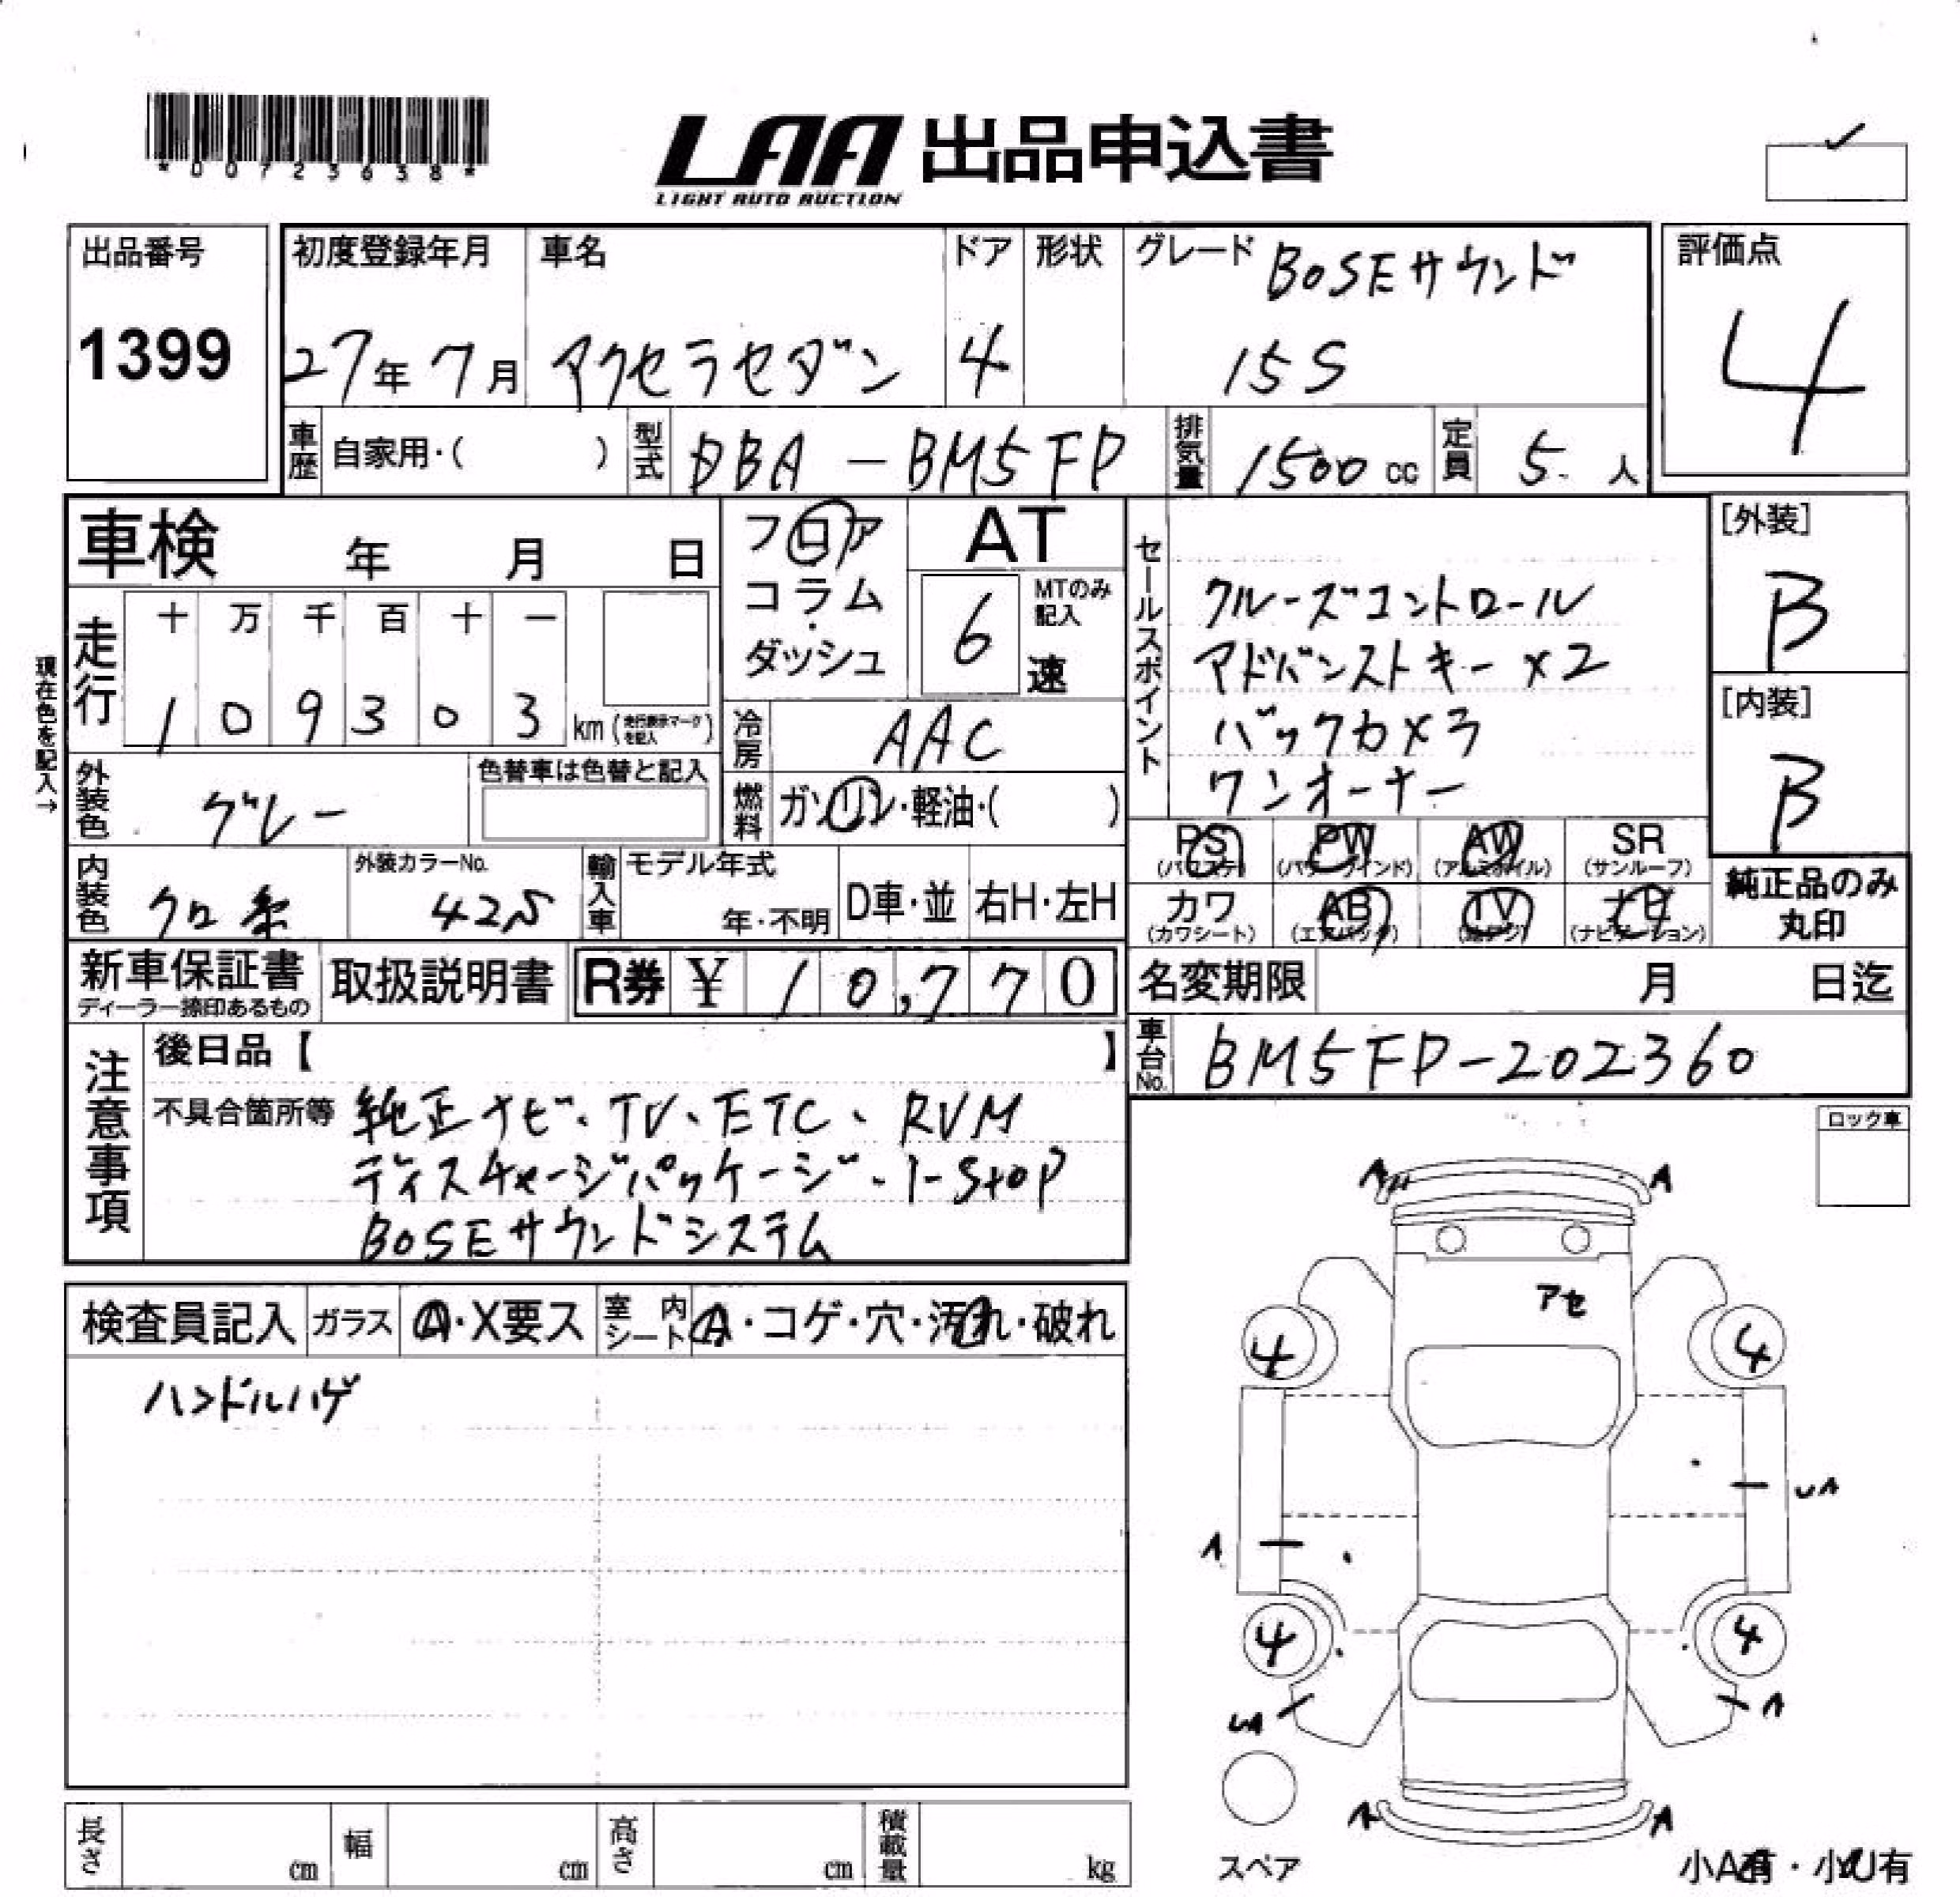 *00723638*
LAA 出品申込書
LIGHT AUTO AUCTION
出品番号
1399
初度登録年月
27年 7月
車名
アクセラセダン
ドア
4
形状
グレード BOSEサウンド
15S
評価点
4
車歴 自家用・( )
型式 DBA-BM5FP
排気量 1500cc
定員 5人
車検 年 月 日
フロア
コラム
・
ダッシュ
AT
6 速
MTのみ
記入
セールスポイント
クルーズコントロール
アドバンストキー×2
バックカメラ
ワンオーナー
[外装]
B
[内装]
B
現在色を記入→
走行
十 万 千 百 十 一
1 0 9 3 0 3 km (走行表示マークを記入)
冷房 AAC
外装色 グレー
色替車は色替と記入
燃料 ガソリン・軽油・( )
PS (パワステ)
PW (パワーウインド)
AW (アルミホイル)
SR (サンルーフ)
カワ (カワシート)
AB (エアバッグ)
TV (地デジ)
ナビ (ナビゲーション)
純正品のみ
丸印
内装色 クロ系
外装カラーNo.
42S
輸入車
モデル年式
年・不明
D車・並
右H・左H
新車保証書
ディーラー捺印あるもの
取扱説明書
R券 ¥ 10,770
名変期限 月 日迄
車台No. BM5FP-202360
注意事項
後日品【 】
不具合箇所等 純正ナビ、TV、ETC、RVM
ディスチャージパッケージ、i-stop
BOSEサウンドシステム
ロック車
検査員記入 ガラス A・X要ス 室内シート A・コゲ・穴・汚れ・破れ
ハンドルハゲ
A A
アセ
4 4
UA
A
4 4
UA A
A A
スペア
小A有・小U有
長さ cm
幅 cm
高さ cm
積載量 kg